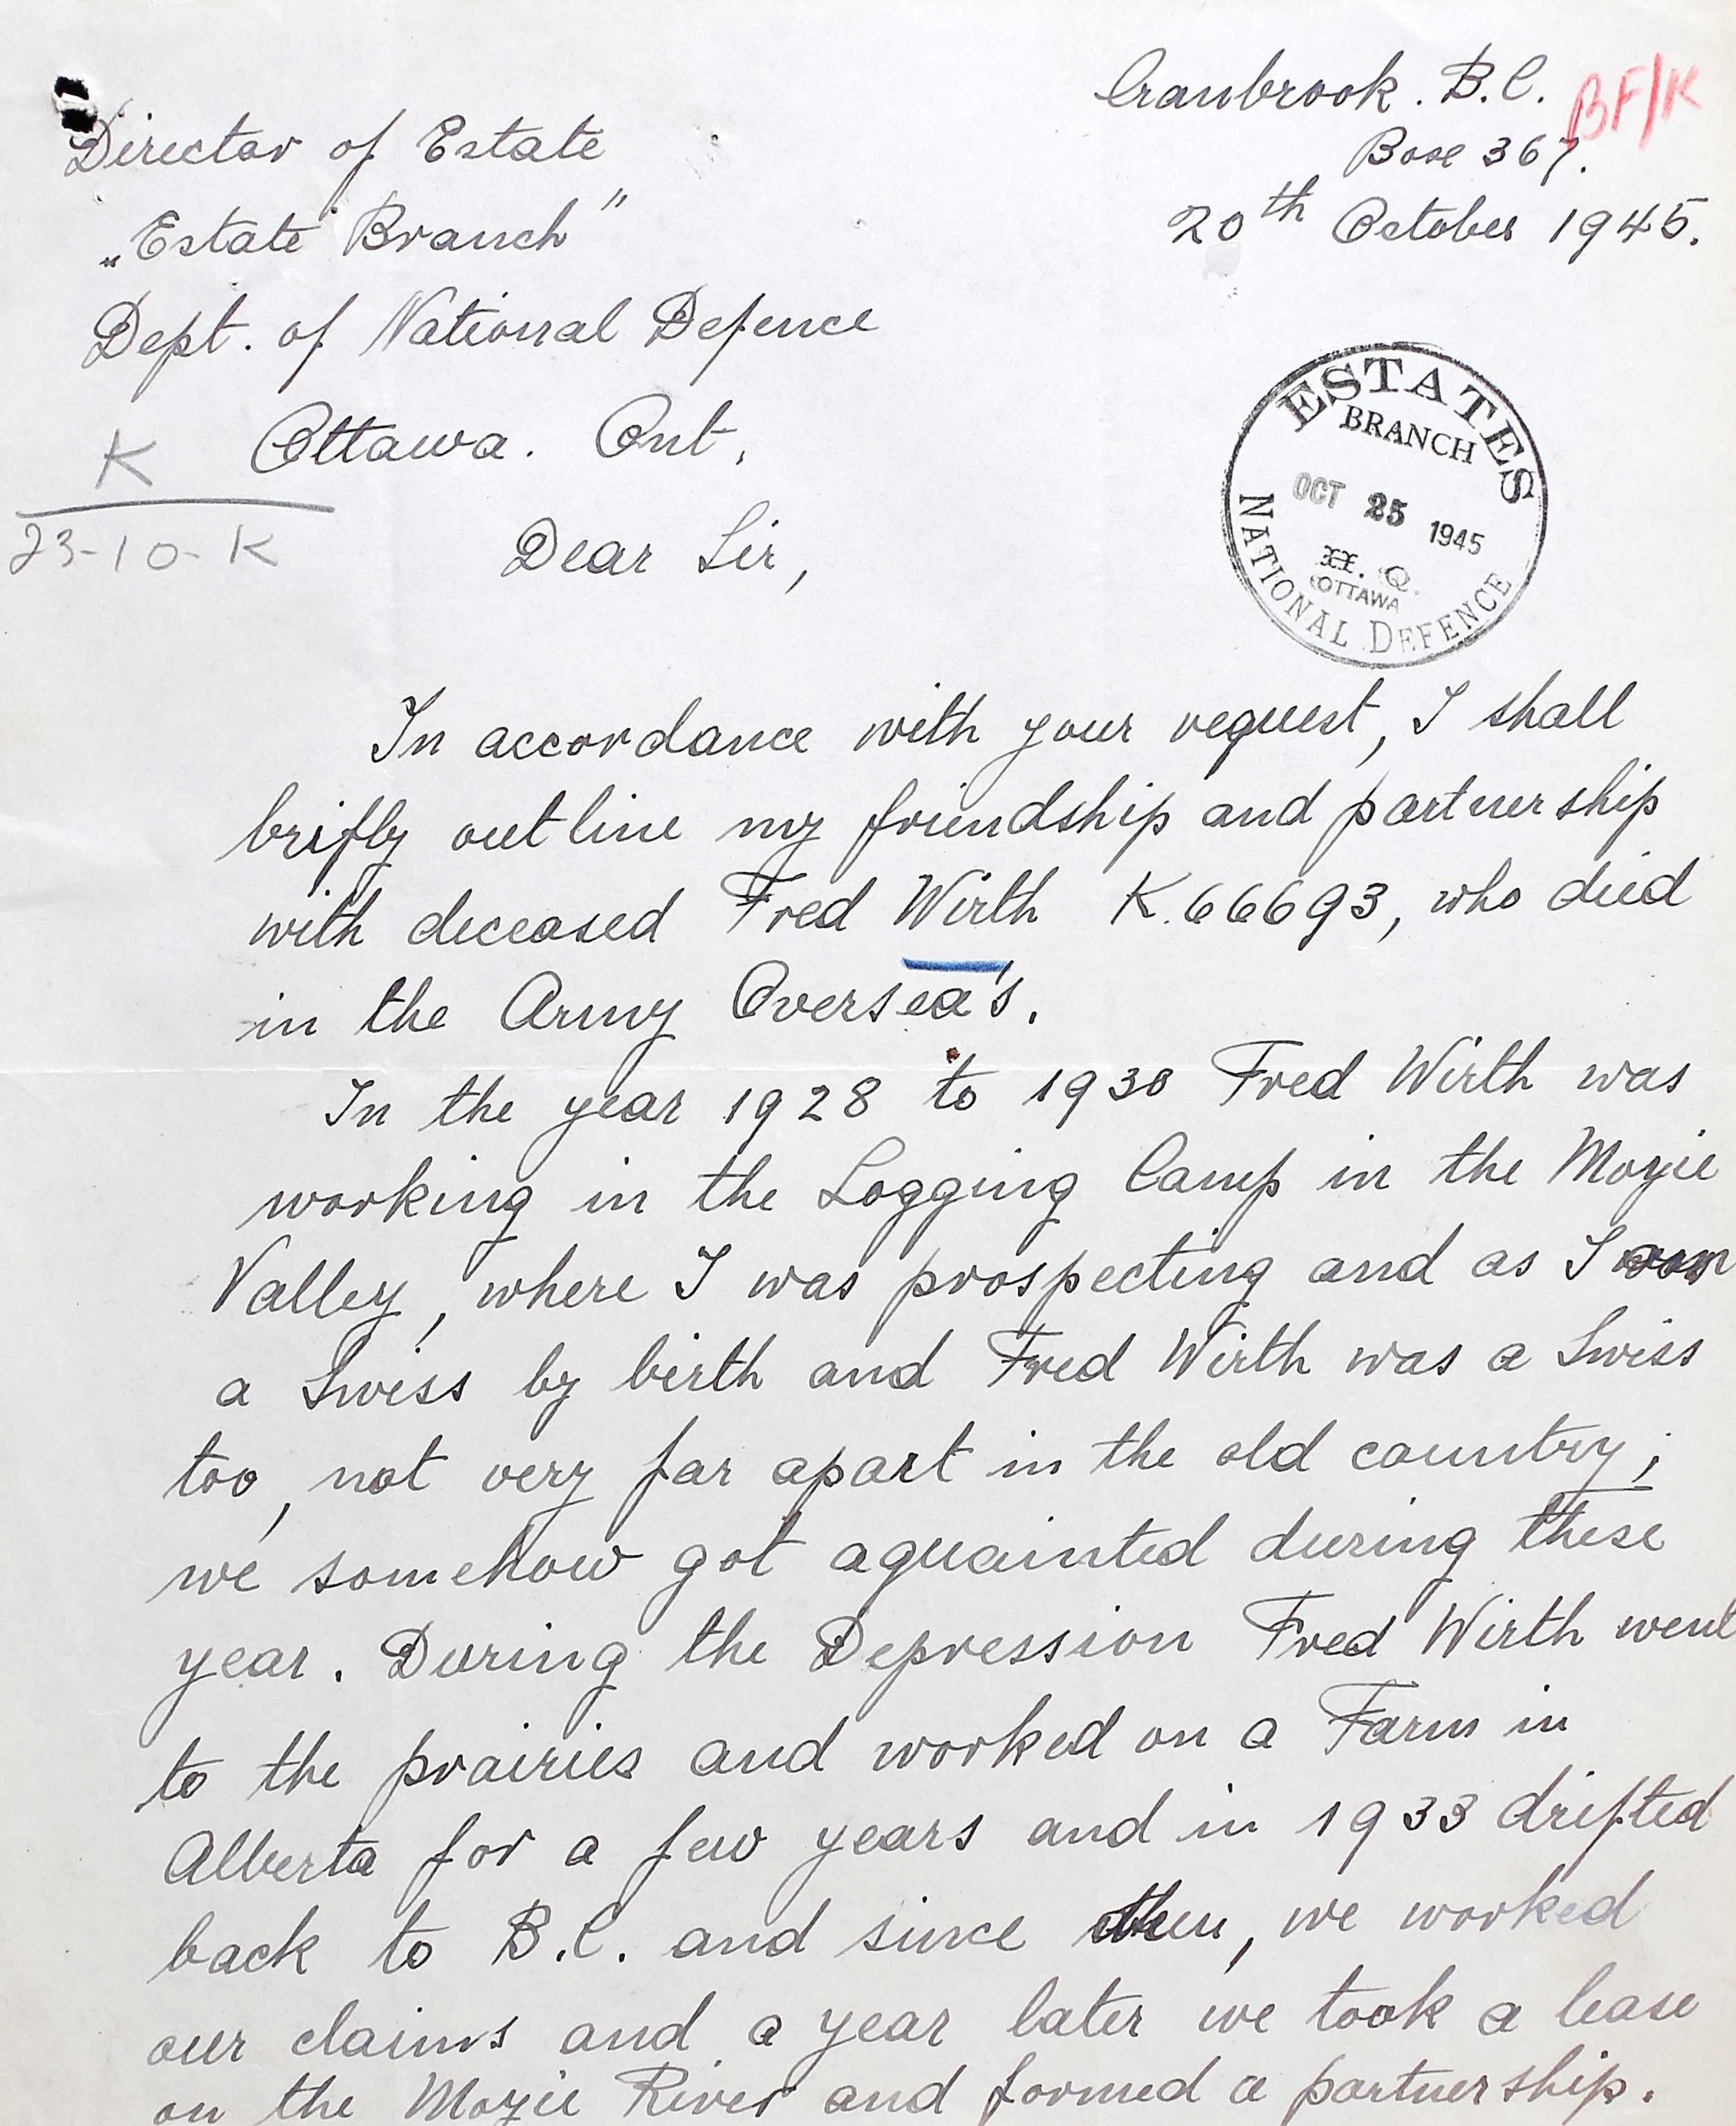 Cranbrook. B.C.
BF/K
Box 367.
20th October 1945.
Director of Estate
„Estate Branch”
Dept. of National Defence
Ottawa. Ont,
K
23-10-K
ESTATES
BRANCH
OCT 25 1945
H. Q.
OTTAWA
NATIONAL DEFENCE
Dear Sir,
In accordance with your request, I shall
brifly outline my friendship and partnership
with deceased Fred Wirth K.66693, who died
in the Army Oversea's.
In the year 1928 to 1930 Fred Wirth was
working in the Logging Camp in the Moyie
Valley, where I was prospecting and as I am
a Swiss by birth and Fred Wirth was a Swiss
too, not very far apart in the old country;
we somehow got aquainted during these
year. During the Depression Fred Wirth went
to the prairies and worked on a Farm in
Alberta for a few years and in 1933 drifted
back to B.C. and since then, we worked
our claims and a year later we took a lease
on the Moyie River and formed a partnership.